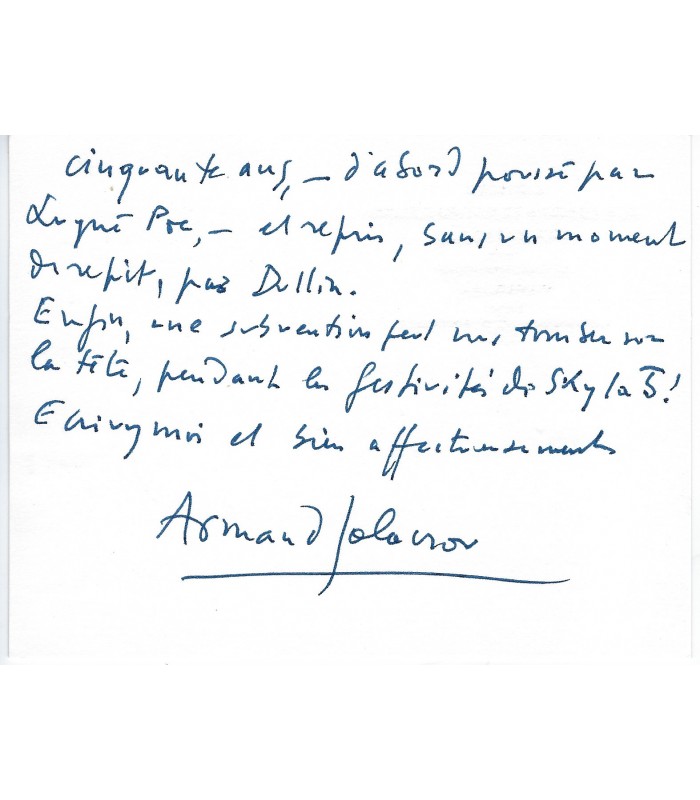 cinquante ans, – d'abord poussé par
Lugné Poe, – et repris, sans un moment
de répit, par Dullin.
Enfin, une subvention peut nous tomber sur
la tête, pendant les festivités de Skylab !
Ecrivez moi et bien affectueusement
Armand Salacrou